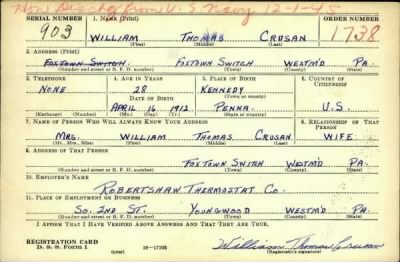 Hon Discharg from U.S. Navy 12-1-45
SERIAL NUMBER 1. NAME (Print) ORDER NUMBER
903 WILLIAM THOMAS CRUSAN 1738
(First) (Middle) (Last)
2. ADDRESS (Print)
FOXTOWN SWITCH FOXTOWN SWITCH WESTM'D PA.
(Number and street or R. F. D. number) (Town) (County) (State)
3. TELEPHONE 4. AGE IN YEARS 5. PLACE OF BIRTH 6. COUNTRY OF CITIZENSHIP
NONE 28 KENNEDY
DATE OF BIRTH
APRIL 16 1912 PENNA. U.S.
(Exchange) (Number) (Mo.) (Day) (Yr.) (State or country)
7. NAME OF PERSON WHO WILL ALWAYS KNOW YOUR ADDRESS 8. RELATIONSHIP OF THAT PERSON
MRS. WILLIAM THOMAS CRUSAN WIFE
(Mr., Mrs., Miss) (First) (Middle) (Last)
9. ADDRESS OF THAT PERSON
FOXTOWN SWITH WESTM'D PA.
(Number and street or R. F. D. number) (Town) (County) (State)
10. EMPLOYER'S NAME
ROBERTSHAW THERMOSTAT CO.
11. PLACE OF EMPLOYMENT OR BUSINESS
SO. 2ND ST. YOUNGWOOD WESTM'D PA.
(Number and street or R. F. D. number) (Town) (County) (State)
I AFFIRM THAT I HAVE VERIFIED ABOVE ANSWERS AND THAT THEY ARE TRUE.
REGISTRATION CARD
D. S. S. Form 1 (over) 16-17105 William Thomas Crusan
(Registrant's signature)